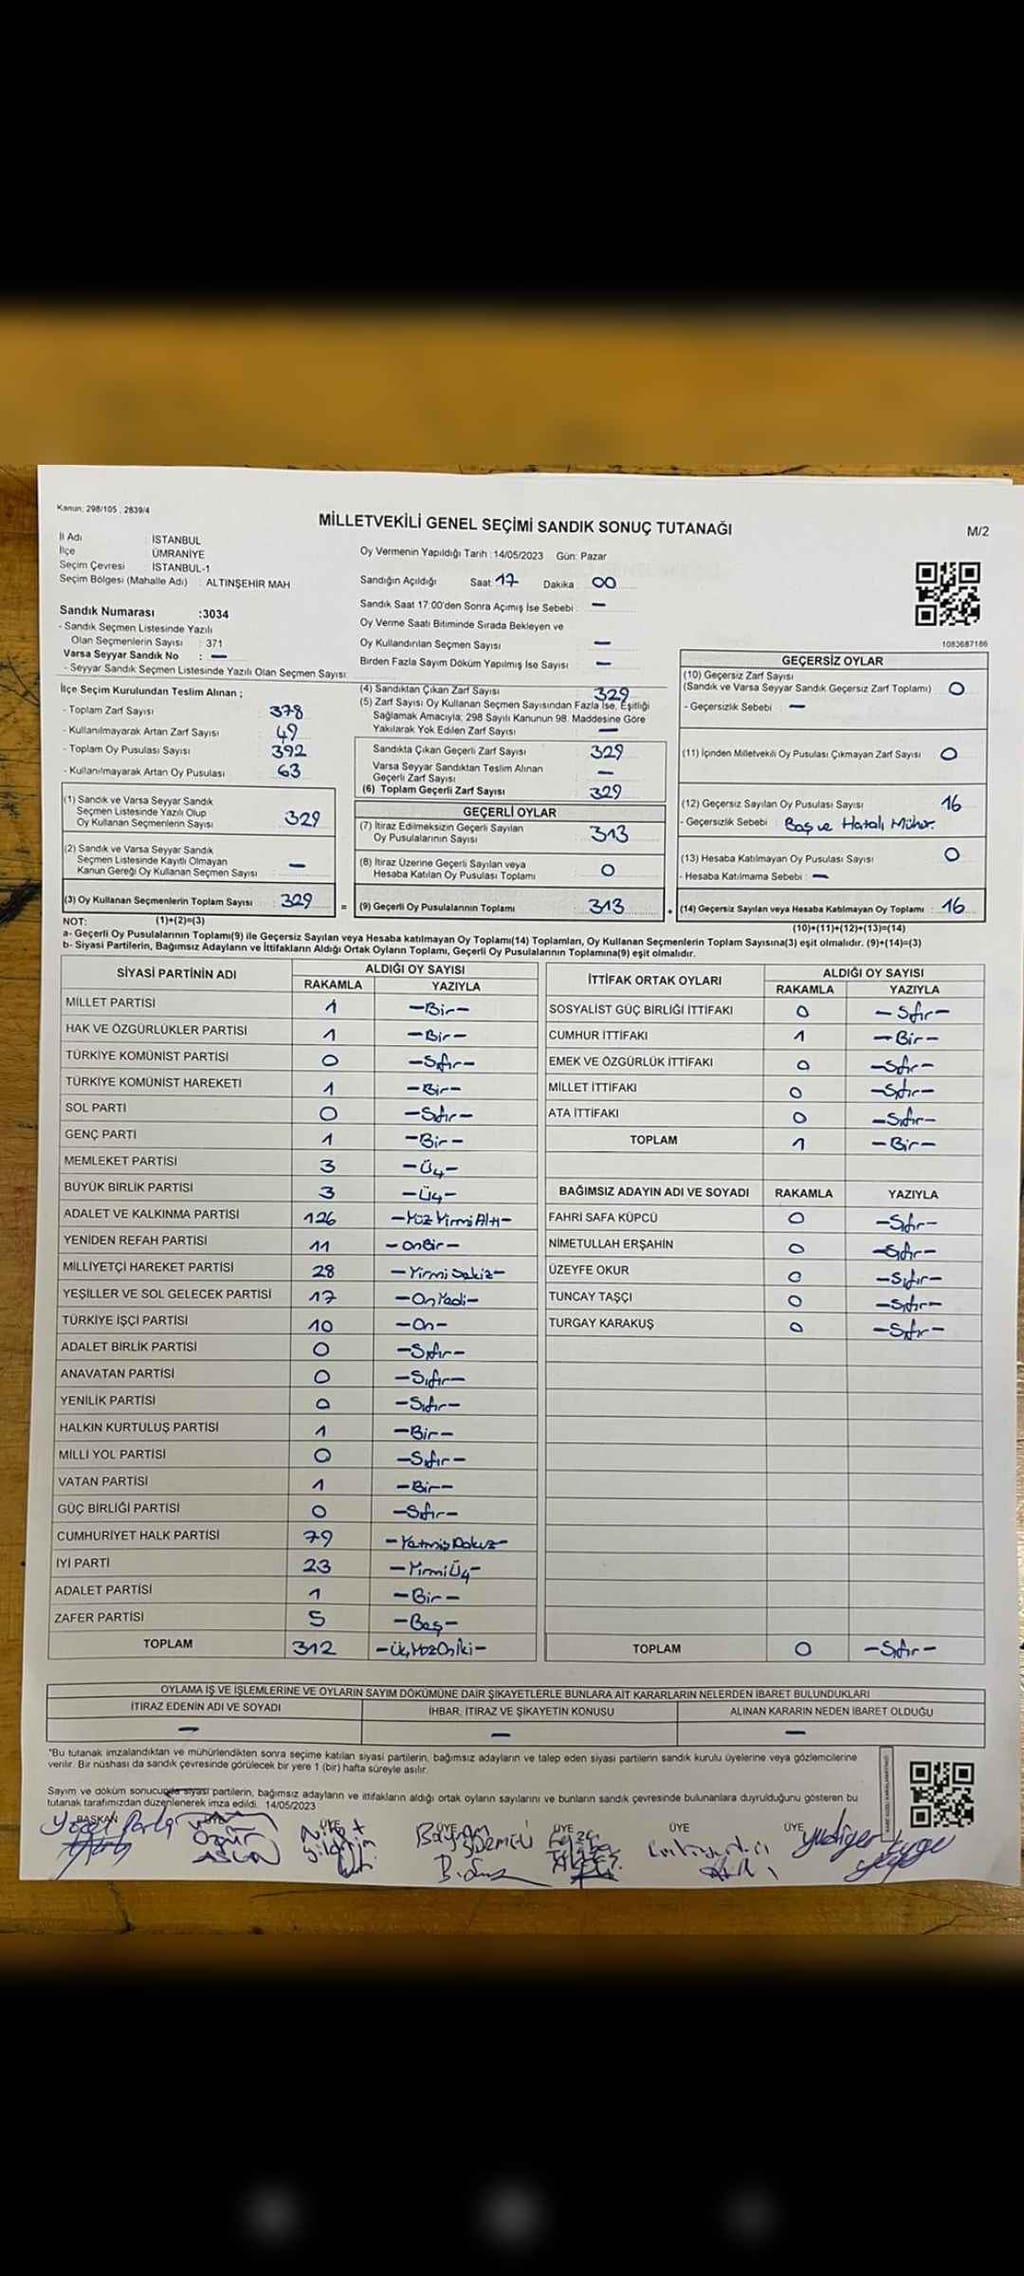 Kanun: 298/105 , 2839/4
MİLLETVEKİLİ GENEL SEÇİMİ SANDIK SONUÇ TUTANAĞI
M/2
İl Adı : İSTANBUL
İlçe : ÜMRANİYE
Seçim Çevresi : İSTANBUL-1
Seçim Bölgesi (Mahalle Adı) : ALTINŞEHİR MAH
Sandık Numarası :3034
- Sandık Seçmen Listesinde Yazılı
Olan Seçmenlerin Sayısı : 371
Varsa Seyyar Sandık No : —
- Seyyar Sandık Seçmen Listesinde Yazılı Olan Seçmen Sayısı:
Oy Vermenin Yapıldığı Tarih :14/05/2023 Gün: Pazar
Sandığın Açıldığı Saat: 17 Dakika : 00
Sandık Saat 17:00'den Sonra Açımış İse Sebebi : —
Oy Verme Saati Bitiminde Sırada Bekleyen ve
Oy Kullandırılan Seçmen Sayısı : —
Birden Fazla Sayım Döküm Yapılmış İse Sayısı : —
1083687186
İlçe Seçim Kurulundan Teslim Alınan ;
- Toplam Zarf Sayısı : 378
- Kullanılmayarak Artan Zarf Sayısı : 49
- Toplam Oy Pusulası Sayısı : 392
- Kullanılmayarak Artan Oy Pusulası : 63
(1) Sandık ve Varsa Seyyar Sandık
Seçmen Listesinde Yazılı Olup
Oy Kullanan Seçmenlerin Sayısı : 329
(2) Sandık ve Varsa Seyyar Sandık
Seçmen Listesinde Kayıtlı Olmayan
Kanun Gereği Oy Kullanan Seçmen Sayısı : —
(3) Oy Kullanan Seçmenlerin Toplam Sayısı : 329
(4) Sandıktan Çıkan Zarf Sayısı : 329
(5) Zarf Sayısı Oy Kullanan Seçmen Sayısından Fazla İse, Eşitliği
Sağlamak Amacıyla; 298 Sayılı Kanunun 98. Maddesine Göre
Yakılarak Yok Edilen Zarf Sayısı : —
Sandıkta Çıkan Geçerli Zarf Sayısı : 329
Varsa Seyyar Sandıktan Teslim Alınan
Geçerli Zarf Sayısı : —
(6) Toplam Geçerli Zarf Sayısı : 329
GEÇERLİ OYLAR
(7) İtiraz Edilmeksizin Geçerli Sayılan
Oy Pusulalarının Sayısı : 313
(8) İtiraz Üzerine Geçerli Sayılan veya
Hesaba Katılan Oy Pusulası Toplamı : 0
= (9) Geçerli Oy Pusulalarının Toplamı : 313
GEÇERSİZ OYLAR
(10) Geçersiz Zarf Sayısı
(Sandık ve Varsa Seyyar Sandık Geçersiz Zarf Toplamı) : 0
- Geçersizlik Sebebi : —
(11) İçinden Milletvekili Oy Pusulası Çıkmayan Zarf Sayısı : 0
(12) Geçersiz Sayılan Oy Pusulası Sayısı : 16
- Geçersizlik Sebebi : Boş ve Hatalı Mühür.
(13) Hesaba Katılmayan Oy Pusulası Sayısı : 0
- Hesaba Katılmama Sebebi : —
+ (14) Geçersiz Sayılan veya Hesaba Katılmayan Oy Toplamı : 16
NOT: (1)+(2)=(3)
(10)+(11)+(12)+(13)=(14)
a- Geçerli Oy Pusulalarının Toplamı(9) ile Geçersiz Sayılan veya Hesaba katılmayan Oy Toplamı(14) Toplamları, Oy Kullanan Seçmenlerin Toplam Sayısına(3) eşit olmalıdır. (9)+(14)=(3)
b- Siyasi Partilerin, Bağımsız Adayların ve İttifakların Aldığı Ortak Oyların Toplamı, Geçerli Oy Pusulalarının Toplamına(9) eşit olmalıdır.
SİYASİ PARTİNİN ADI ALDIĞI OY SAYISI
RAKAMLA YAZIYLA
MİLLET PARTİSİ 1 -Bir-
HAK VE ÖZGÜRLÜKLER PARTİSİ 1 -Bir-
TÜRKİYE KOMÜNİST PARTİSİ 0 -Sıfır-
TÜRKİYE KOMÜNİST HAREKETİ 1 -Bir-
SOL PARTİ 0 -Sıfır-
GENÇ PARTİ 1 -Bir-
MEMLEKET PARTİSİ 3 -Üç-
BÜYÜK BİRLİK PARTİSİ 3 -Üç-
ADALET VE KALKINMA PARTİSİ 126 -Yüz Yirmi Altı-
YENİDEN REFAH PARTİSİ 11 -OnBir-
MİLLİYETÇİ HAREKET PARTİSİ 28 -Yirmi Sekiz-
YEŞİLLER VE SOL GELECEK PARTİSİ 17 -On Yedi-
TÜRKİYE İŞÇİ PARTİSİ 10 -On-
ADALET BİRLİK PARTİSİ 0 -Sıfır-
ANAVATAN PARTİSİ 0 -Sıfır-
YENİLİK PARTİSİ 0 -Sıfır-
HALKIN KURTULUŞ PARTİSİ 1 -Bir-
MİLLİ YOL PARTİSİ 0 -Sıfır-
VATAN PARTİSİ 1 -Bir-
GÜÇ BİRLİĞİ PARTİSİ 0 -Sıfır-
CUMHURİYET HALK PARTİSİ 79 -Yetmiş Dokuz-
İYİ PARTİ 23 -Yirmi Üç-
ADALET PARTİSİ 1 -Bir-
ZAFER PARTİSİ 5 -Beş-
TOPLAM 312 -Üç Yüz On İki-
İTTİFAK ORTAK OYLARI ALDIĞI OY SAYISI
RAKAMLA YAZIYLA
SOSYALİST GÜÇ BİRLİĞİ İTTİFAKI 0 -Sıfır-
CUMHUR İTTİFAKI 1 -Bir-
EMEK VE ÖZGÜRLÜK İTTİFAKI 0 -Sıfır-
MİLLET İTTİFAKI 0 -Sıfır-
ATA İTTİFAKI 0 -Sıfır-
TOPLAM 1 -Bir-
BAĞIMSIZ ADAYIN ADI VE SOYADI RAKAMLA YAZIYLA
FAHRİ SAFA KÜPCÜ 0 -Sıfır-
NİMETULLAH ERŞAHİN 0 -Sıfır-
ÜZEYFE OKUR 0 -Sıfır-
TUNCAY TAŞÇI 0 -Sıfır-
TURGAY KARAKUŞ 0 -Sıfır-
TOPLAM 0 -Sıfır-
OYLAMA İŞ VE İŞLEMLERİNE VE OYLARIN SAYIM DÖKÜMÜNE DAİR ŞİKAYETLERLE BUNLARA AİT KARARLARIN NELERDEN İBARET BULUNDUKLARI
İTİRAZ EDENİN ADI VE SOYADI İHBAR, İTİRAZ VE ŞİKAYETİN KONUSU ALINAN KARARIN NEDEN İBARET OLDUĞU
— — —
*Bu tutanak imzalandıktan ve mühürlendikten sonra seçime katılan siyasi partilerin, bağımsız adayların ve talep eden siyasi partilerin sandık kurulu üyelerine veya gözlemcilerine
verilir. Bir nüshası da sandık çevresinde görülecek bir yere 1 (bir) hafta süreyle asılır.
Sayım ve döküm sonucunda siyasi partilerin, bağımsız adayların ve ittifakların aldığı ortak oyların sayılarını ve bunların sandık çevresinde bulunanlara duyrulduğunu gösteren bu
tutanak tarafımızdan düzenlenerek imza edildi. 14/05/2023
BAŞKAN ÜYE ÜYE ÜYE ÜYE ÜYE